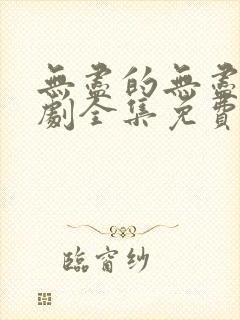 無盡的無盡
劇全集免費
臨窗紗